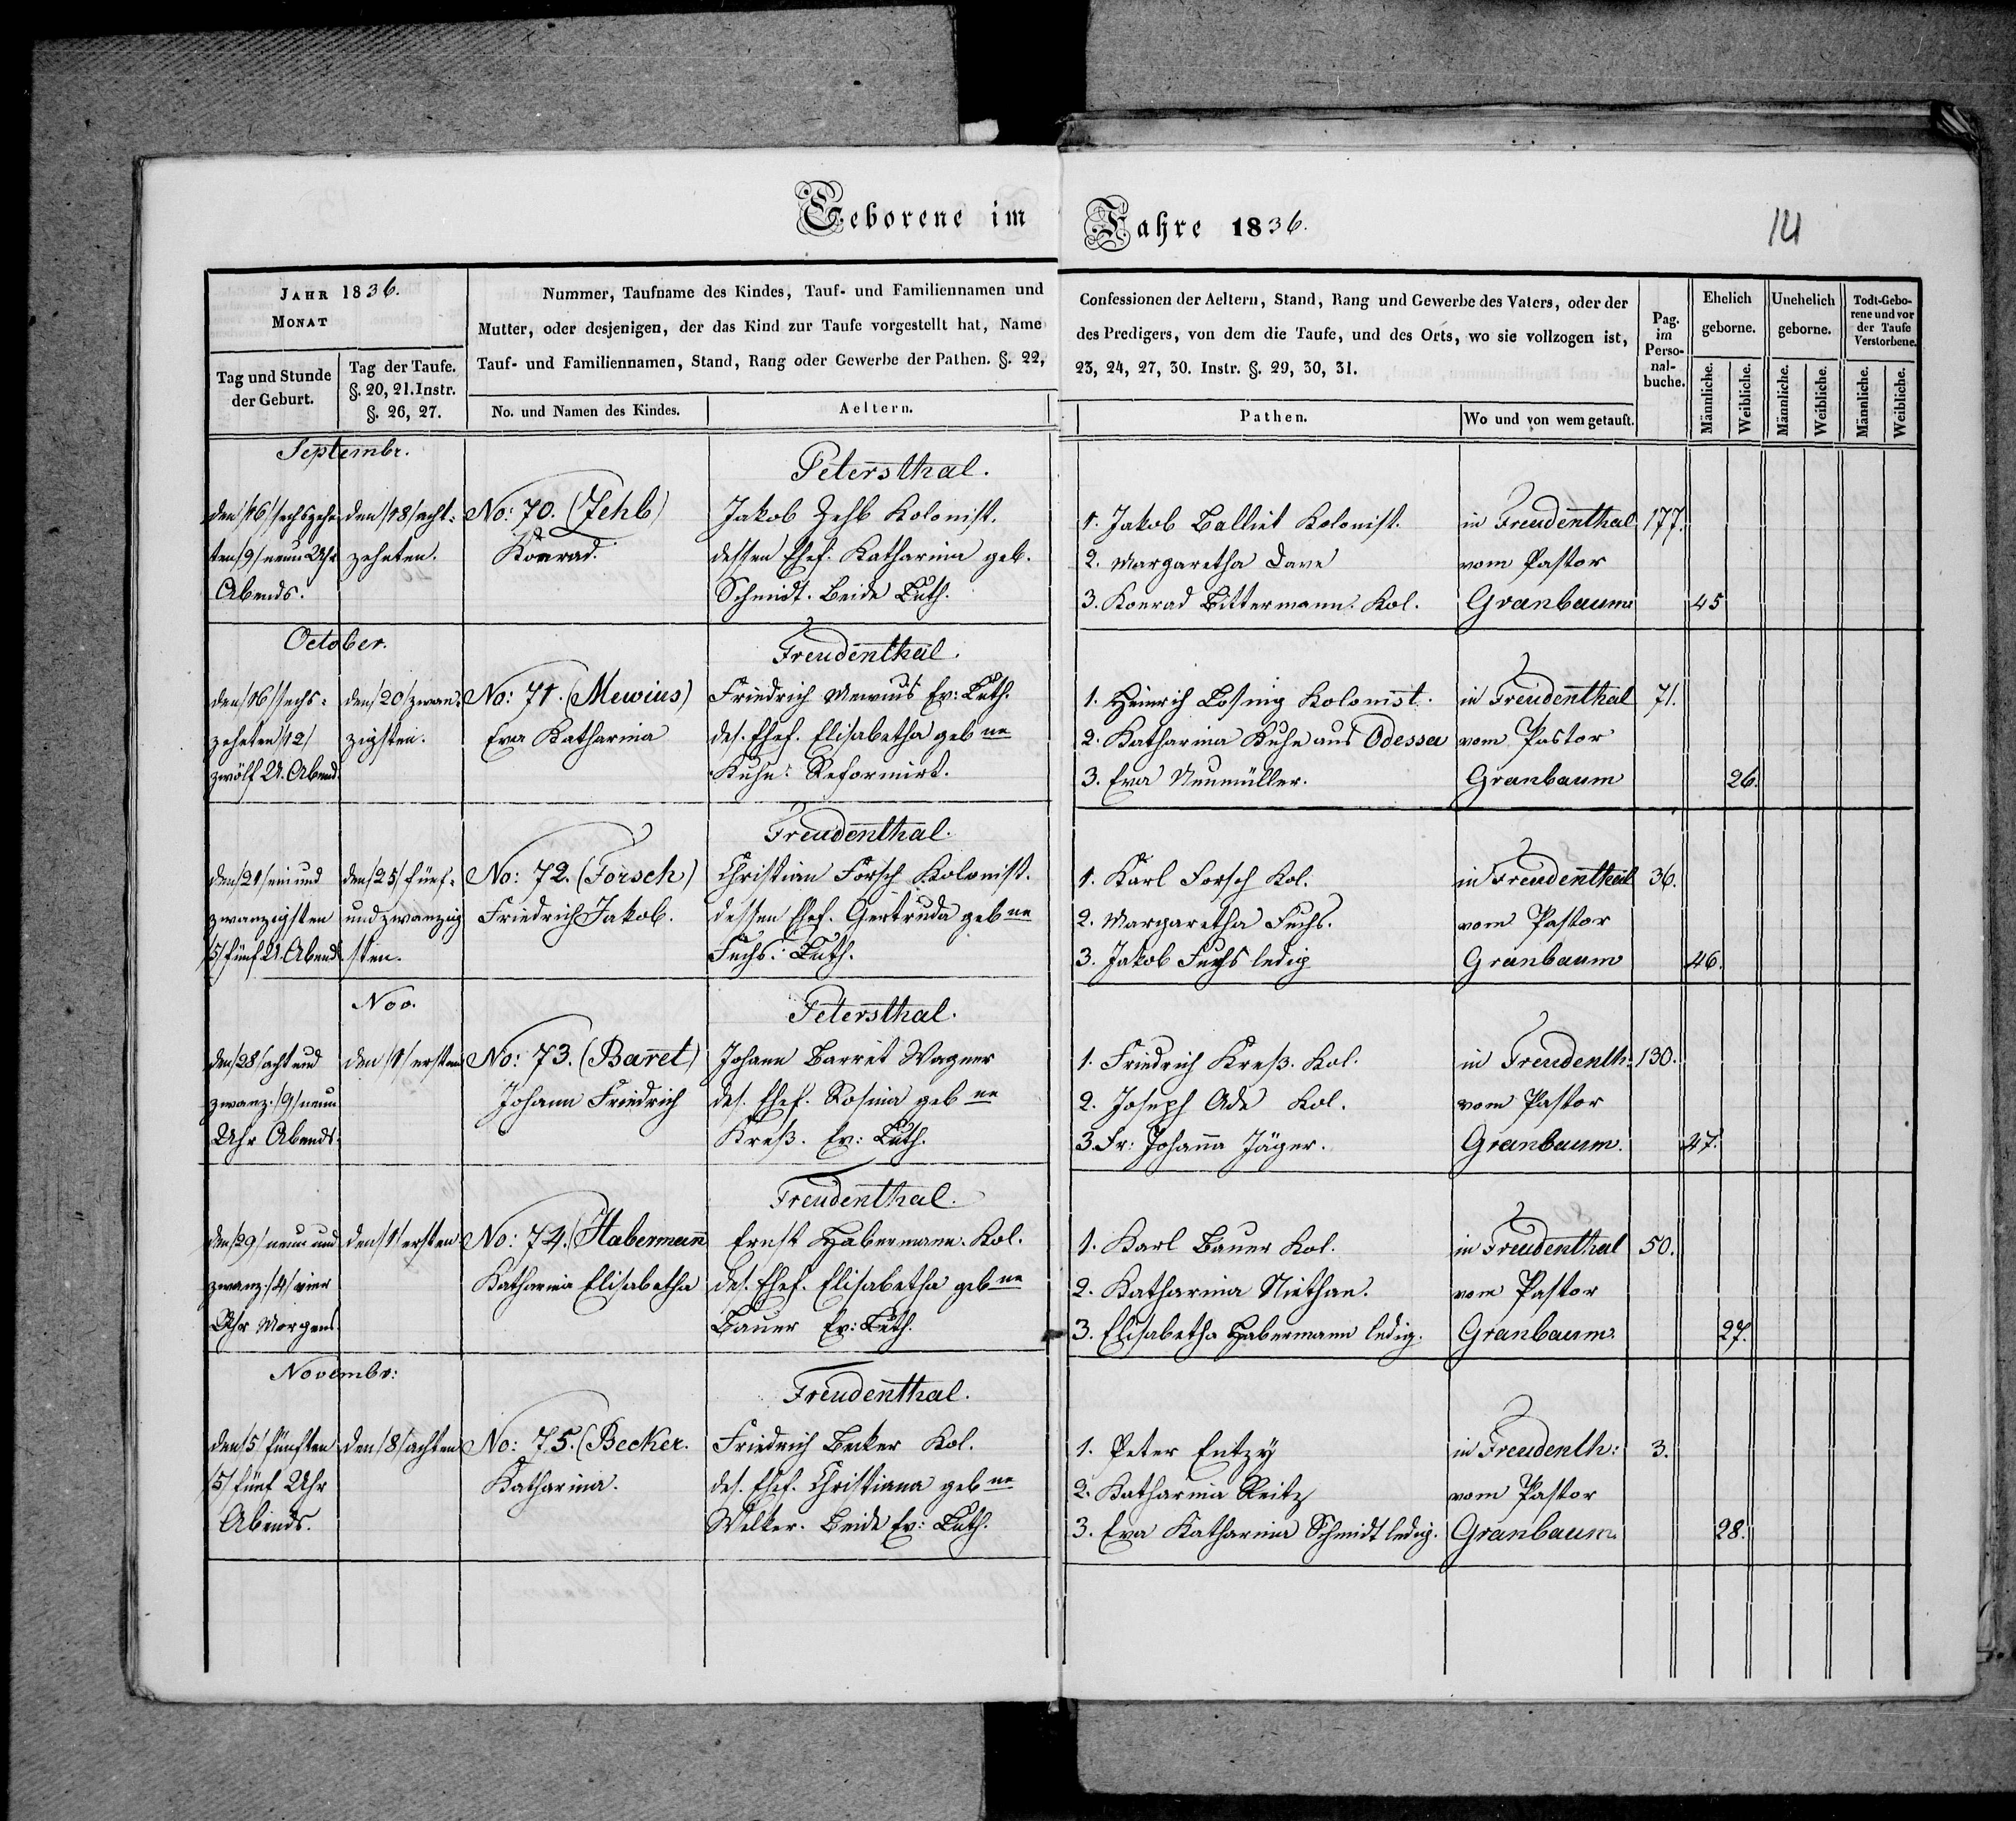 Geborene im Jahre 1836.
141
JAHR 1836.
MONAT
Tag und Stunde der Geburt.
Tag der Taufe. §. 20, 21. Instr. §. 26, 27.
Nummer, Taufname des Kindes, Tauf- und Familiennamen und
Mutter, oder desjenigen, der das Kind zur Taufe vorgestellt hat, Name
Tauf- und Familiennamen, Stand, Rang oder Gewerbe der Pathen. §. 22,
No. und Namen des Kindes.
Aeltern.
Confessionen der Aeltern, Stand, Rang und Gewerbe des Vaters, oder der
des Predigers, von dem die Taufe, und des Orts, wo sie vollzogen ist,
23, 24, 27, 30. Instr. §. 29, 30, 31.
Pathen.
Wo und von wem getauft.
Pag. im Perso-nal-buche.
Ehelich geborne.
Unehelich geborne.
Todt-Gebo-rene und vor der Taufe Verstorbene.
Männliche. Weibliche. Männliche. Weibliche. Männliche. Weibliche.
Septembr.
Petersthal.
den /16/ sechszehn den /18/ acht- No: 70. (Zehb) Jakob Zehb Kolonist. 1. Jakob Balliet Kolonist. in Freudenthal 177.
ten /9/ neun Uhr zehnten. Konrad. dessen Ehef. Katharina geb. 2. Margaretha Dave vom Pastor
Abends. Schmidt. Beide Luth. 3. Konrad Bittermann. Kol. Granbaum 45
October.
Freudenthal.
den /16/ sechs- den /20/ zwan- No: 71. (Mewius) Friedrich Mewius Ev: Luth. 1. Heinrich Losing Kolonist. in Freudenthal 71.
zehnten /12/ zigsten. Eva Katharina des. Ehef. Elisabetha geb ne 2. Katharina Kuhn aus Odessa vom Pastor
zwölf U. Abend. Kuhn: Reformirt. 3. Eva Neumüller. Granbaum 26.
Freudenthal.
den /21/ ein und den /25/ fünf- No: 72. (Forsch) Christian Forsch Kolonist. 1. Karl Forsch Kol. in Freudenthal 36.
zwanzigsten und zwanzig Friedrich Jakob. dessen Ehef. Gertruda geb ne 2. Margaretha Fuchs. vom Pastor
/5/ fünf U. Abend sten. Fuchs: Luth. 3. Jakob Fuchs ledig Granbaum 46.
Nov.
Petersthal.
den /28/ acht und den /1/ ersten No: 73. (Barret) Johann Barret Wagner 1. Friedrich Kreß. Kol. in Freudenth: 130.
zwanz. /9/ neun Johann Friedrich des. Ehef. Rosina geb ne 2. Joseph Ade Kol. vom Pastor
Uhr Abends. Kreß. Ev: Luth. 3. Fr: Johanna Jäger. Granbaum. 47.
Freudenthal.
den /29/ neun und den /1/ ersten No: 74. (Habermann Ernst Habermann. Kol. 1. Karl Bauer Kol. in Freudenthal 50.
zwanz. /4/ vier Katharina Elisabetha des. Ehef. Elisabetha geb ne 2. Katharina Niethan. vom Pastor
Uhr Morgens. Bauer Ev: Luth. 3. Elisabetha Habermann ledig. Granbaum. 27.
Novembr:
Freudenthal.
den /5/ fünften den /8/ achten No: 75. (Becker. Friedrich Becker Kol. 1. Peter Entzy in Freudenth: 3.
/5/ fünf Uhr Katharina. des. Ehef. Christiana geb ne 2. Katharina Reitz vom Pastor
Abends. Welker. Beide Ev: Luth. 3. Eva Katharina Schmidt ledig. Granbaum. 28.